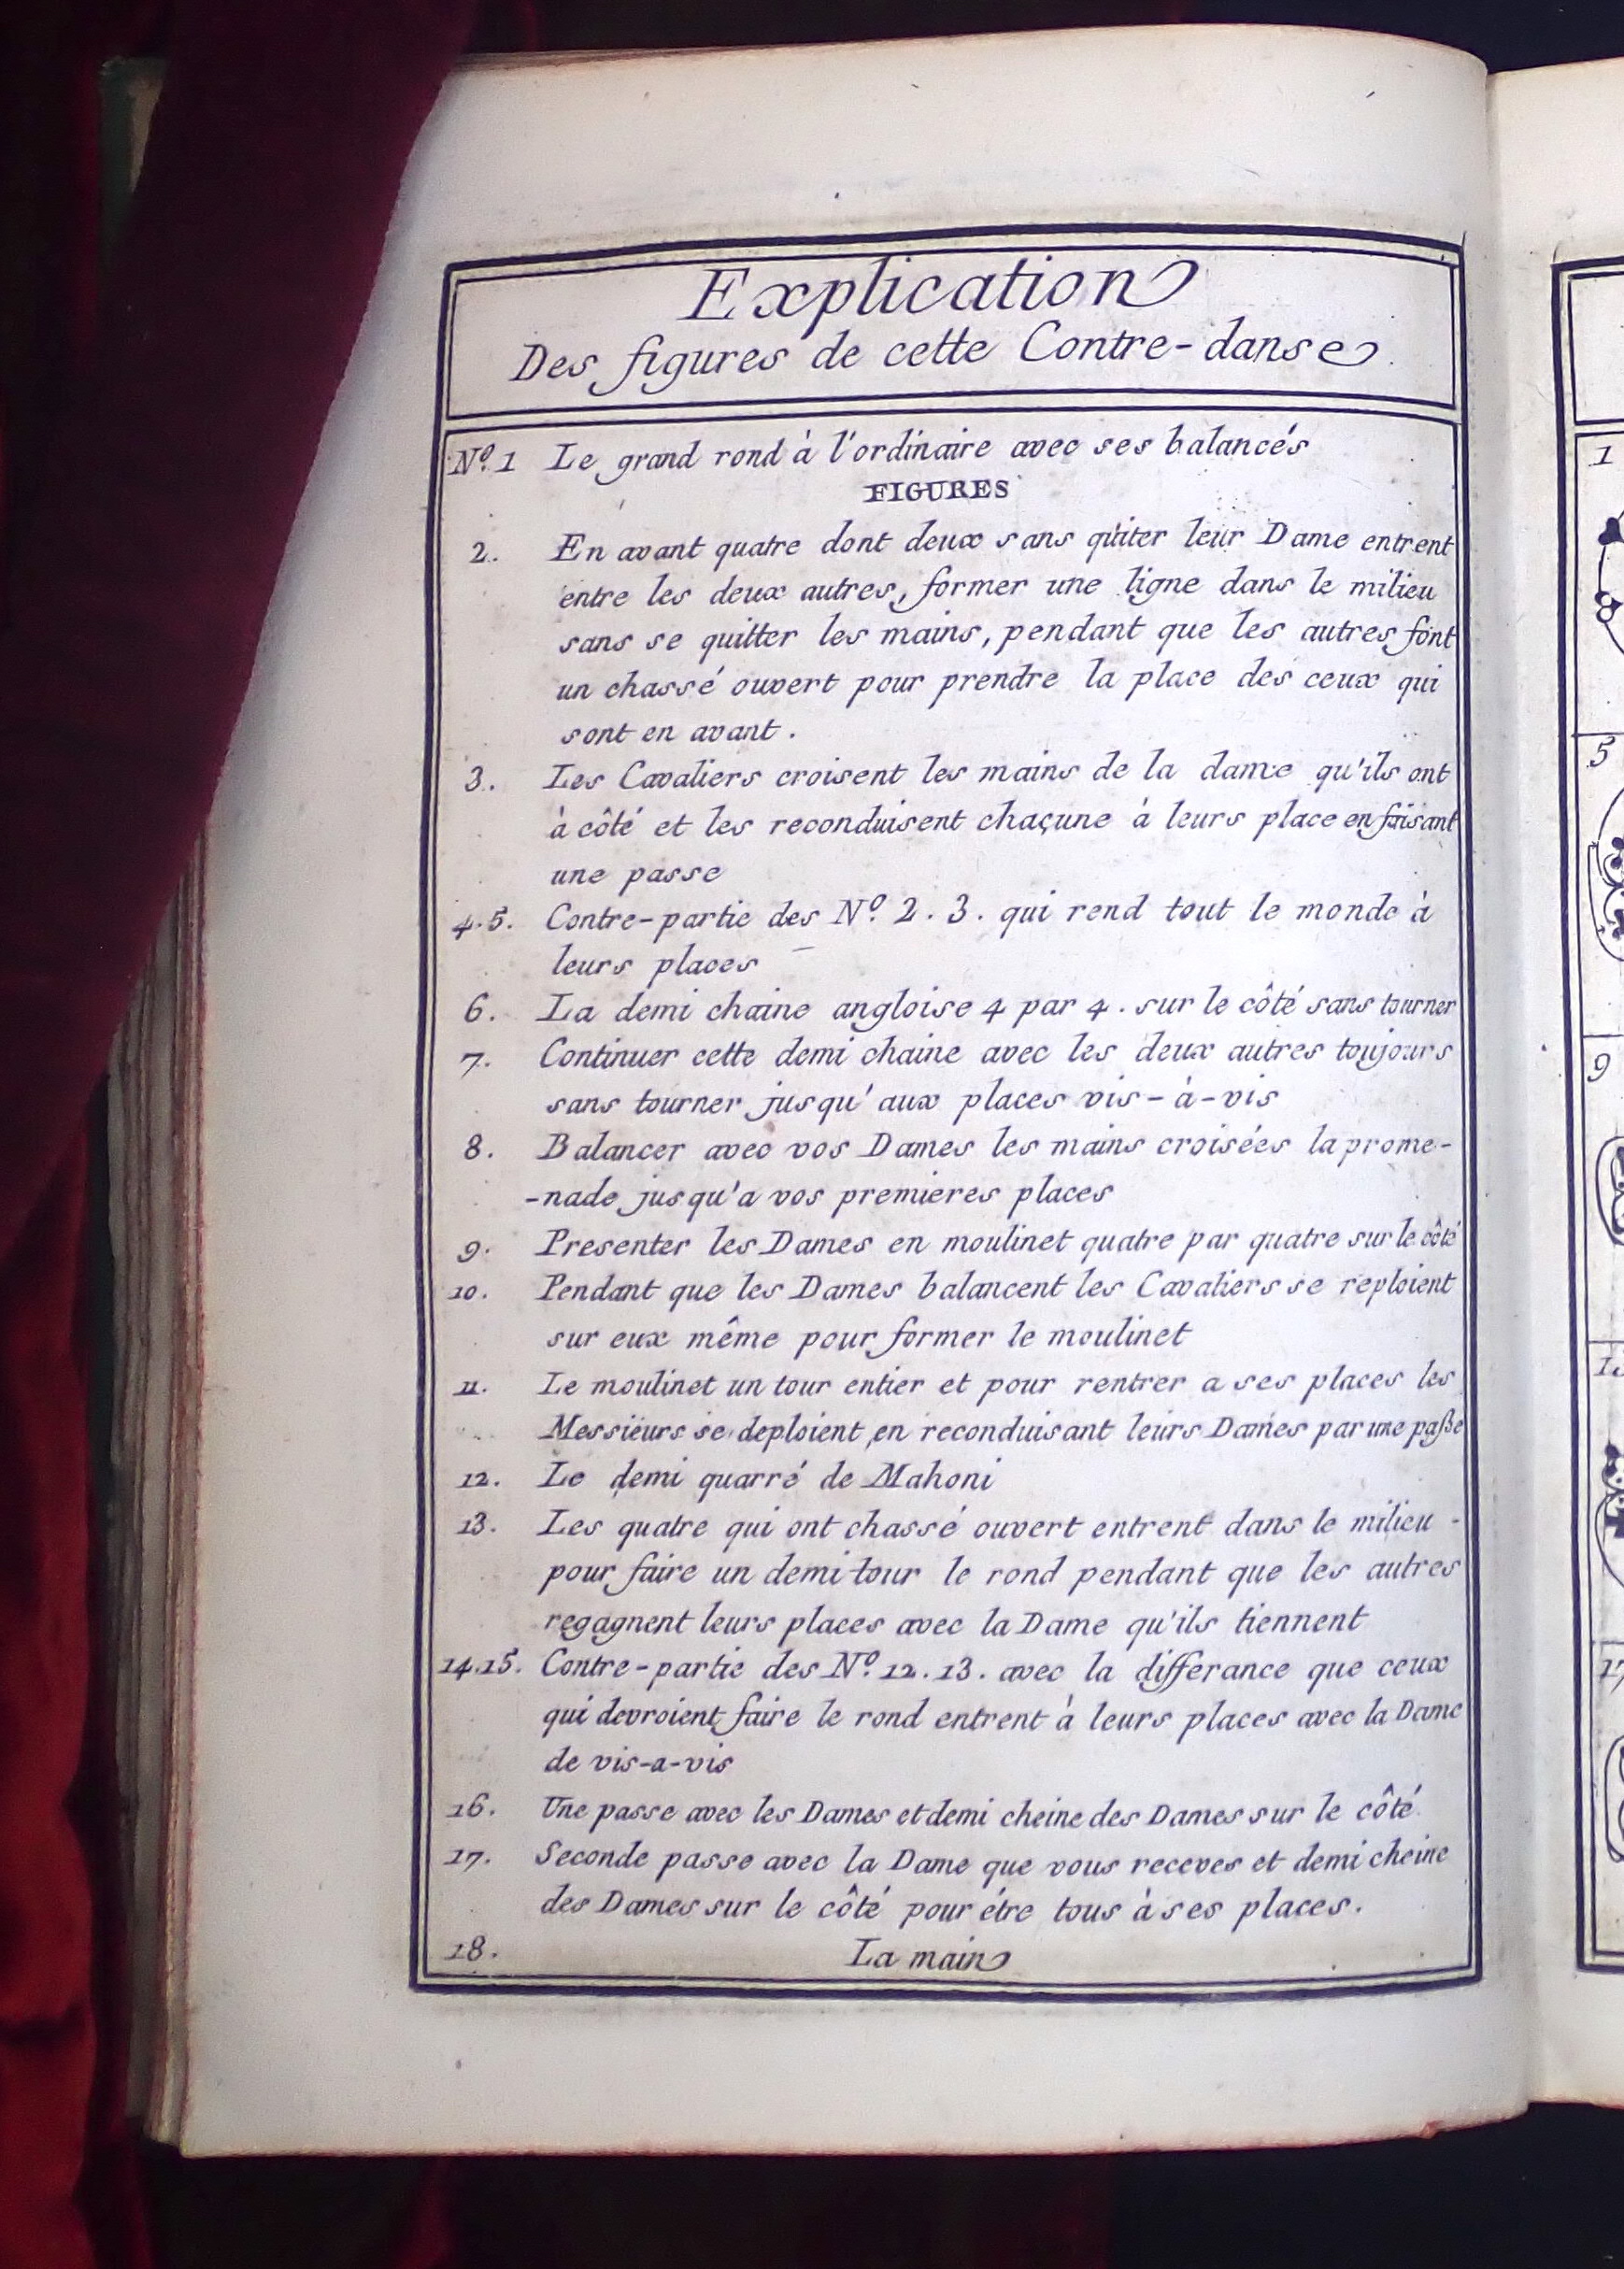 Explication
Des figures de cette Contre-danse
Nº. 1 Le grand rond à l'ordinaire avec ses balancés
FIGURES
2. En avant quatre dont deux sans quiter leur Dame entrent
entre les deux autres, former une ligne dans le milieu
sans se quitter les mains, pendant que les autres font
un chassé ouvert pour prendre la place des ceux qui
sont en avant.
3. Les Cavaliers croisent les mains de la dame qu'ils ont
à côté et les reconduisent chaçune à leurs place en faisant
une passe
4.5. Contre-partie des Nº. 2. 3. qui rend tout le monde à
leurs places
6. La demi chaine angloise 4 par 4. sur le côté sans tourner
7. Continuer cette demi chaine avec les deux autres toujours
sans tourner jusqu'aux places vis-à-vis
8. Balancer avec vos Dames les mains croisées la prome-
-nade jusqu'a vos premieres places
9. Presenter les Dames en moulinet quatre par quatre sur le côté
10. Pendant que les Dames balancent les Cavaliers se reploient
sur eux même pour former le moulinet
11. Le moulinet un tour entier et pour rentrer a ses places les
Messieurs se deploient, en reconduisant leurs Dames par une paße
12. Le demi quarré de Mahoni
13. Les quatre qui ont chassé ouvert entrent dans le milieu -
pour faire un demi-tour le rond pendant que les autres
regagnent leurs places avec la Dame qu'ils tiennent
14.15. Contre-partie des Nº. 12. 13. avec la differance que ceux
qui devroient faire le rond entrent à leurs places avec la Dame
de vis-a-vis
16. Une passe avec les Dames et demi cheine des Dames sur le côté
17. Seconde passe avec la Dame que vous receves et demi cheine
des Dames sur le côté pour étre tous à ses places.
18. La main
1
5
9
17